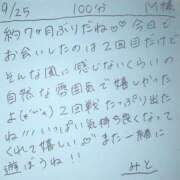 9/25 100分 M様
約7ヶ月ぶりだね♡♡ 今日で
お会いしたのは2回目だけど
そんな風に感じないくらいの
自然な雰囲気で嬉しかった
よ(*˘︶˘*) 2回戦たっぷり出した
ね!!! いっぱい気持ち良くなって
くれて嬉しい♡ また一緒に
遊ぼうね!!
みと